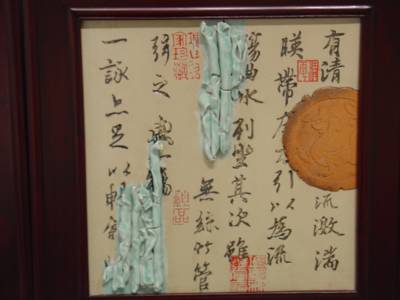 有清流激湍
暎帶左右引以為流
觴曲水列坐其次雖
無絲竹管
弦之盛一觴
一詠亦足以暢敘